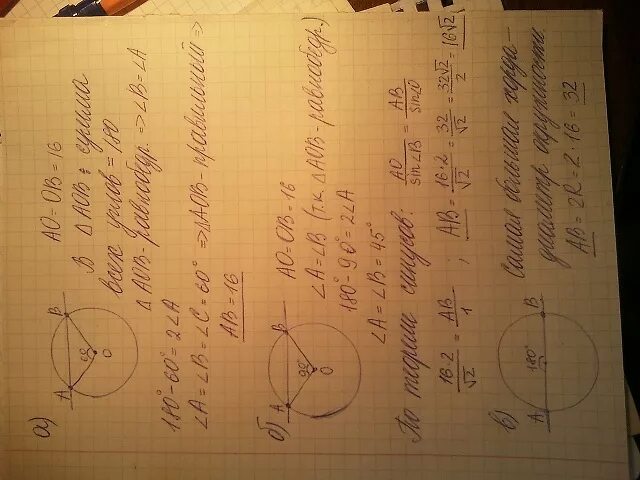 а) AO=OB=16
A B 60° O
В △AOB: сумма
всех углов = 180
△AOB-равнобедр. => ∠B = ∠A
180°-60°=2∠A
∠A=∠B=∠C=60° => △AOB-правильный =>
AB=16
б) AO=OB=16
A B 90° O
∠A=∠B (т.к. △AOB-равнобедр.)
180°-90°=2∠A
∠A=∠B=45°
По теореме синусов: AO/sin∠B = AB/sin∠O
16·2/√2 = AB/1 ; AB = 16·2/√2 = 32/√2 = 32√2/2 = 16√2
в) Самая большая хорда-
A 180° B
диаметр окружности
AB=2R=2·16=32